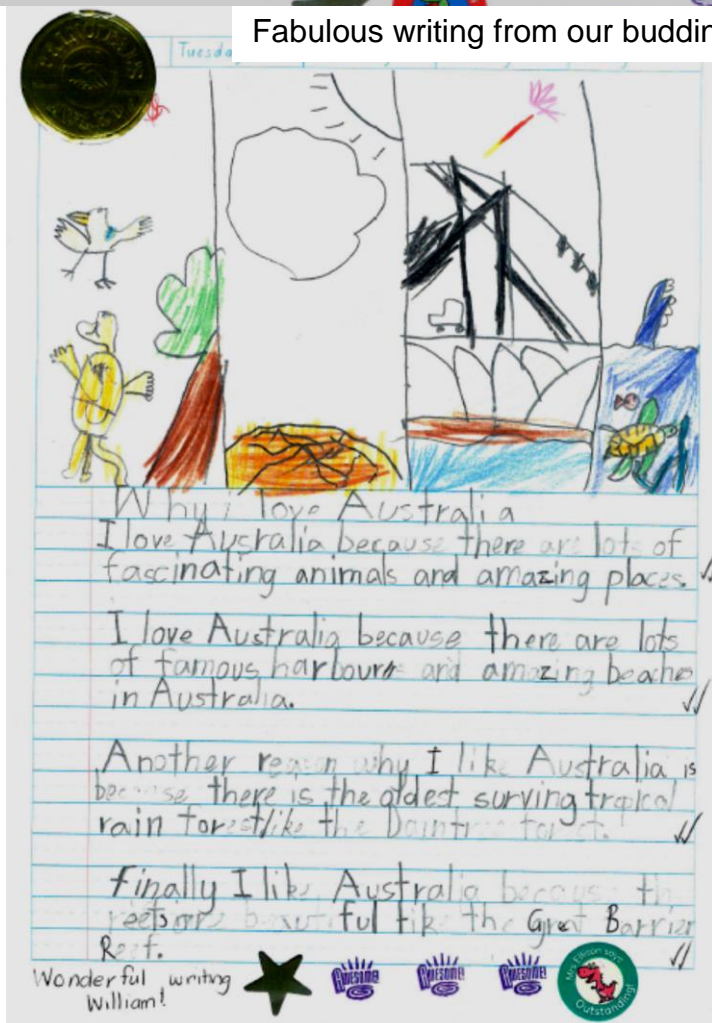 Fabulous writing from our buddin
Tuesda
Why i love Australia
I love Ausralia because there are lots of
fascinating animals and amazing places.
I love Australia because there are lots
of famous harbours and amazing beaches
in Australia.
Another reason why I like Australia is
because there is the oldest surving tropical
rain forest like the Daintree forest.
Finally I like Australia because th
reefs are beautiful like the Great Barrier
Reef.
Wonderful writing
William!
AWESOME!
AWESOME!
AWESOME!
Mrs Ellison says
Outstanding!